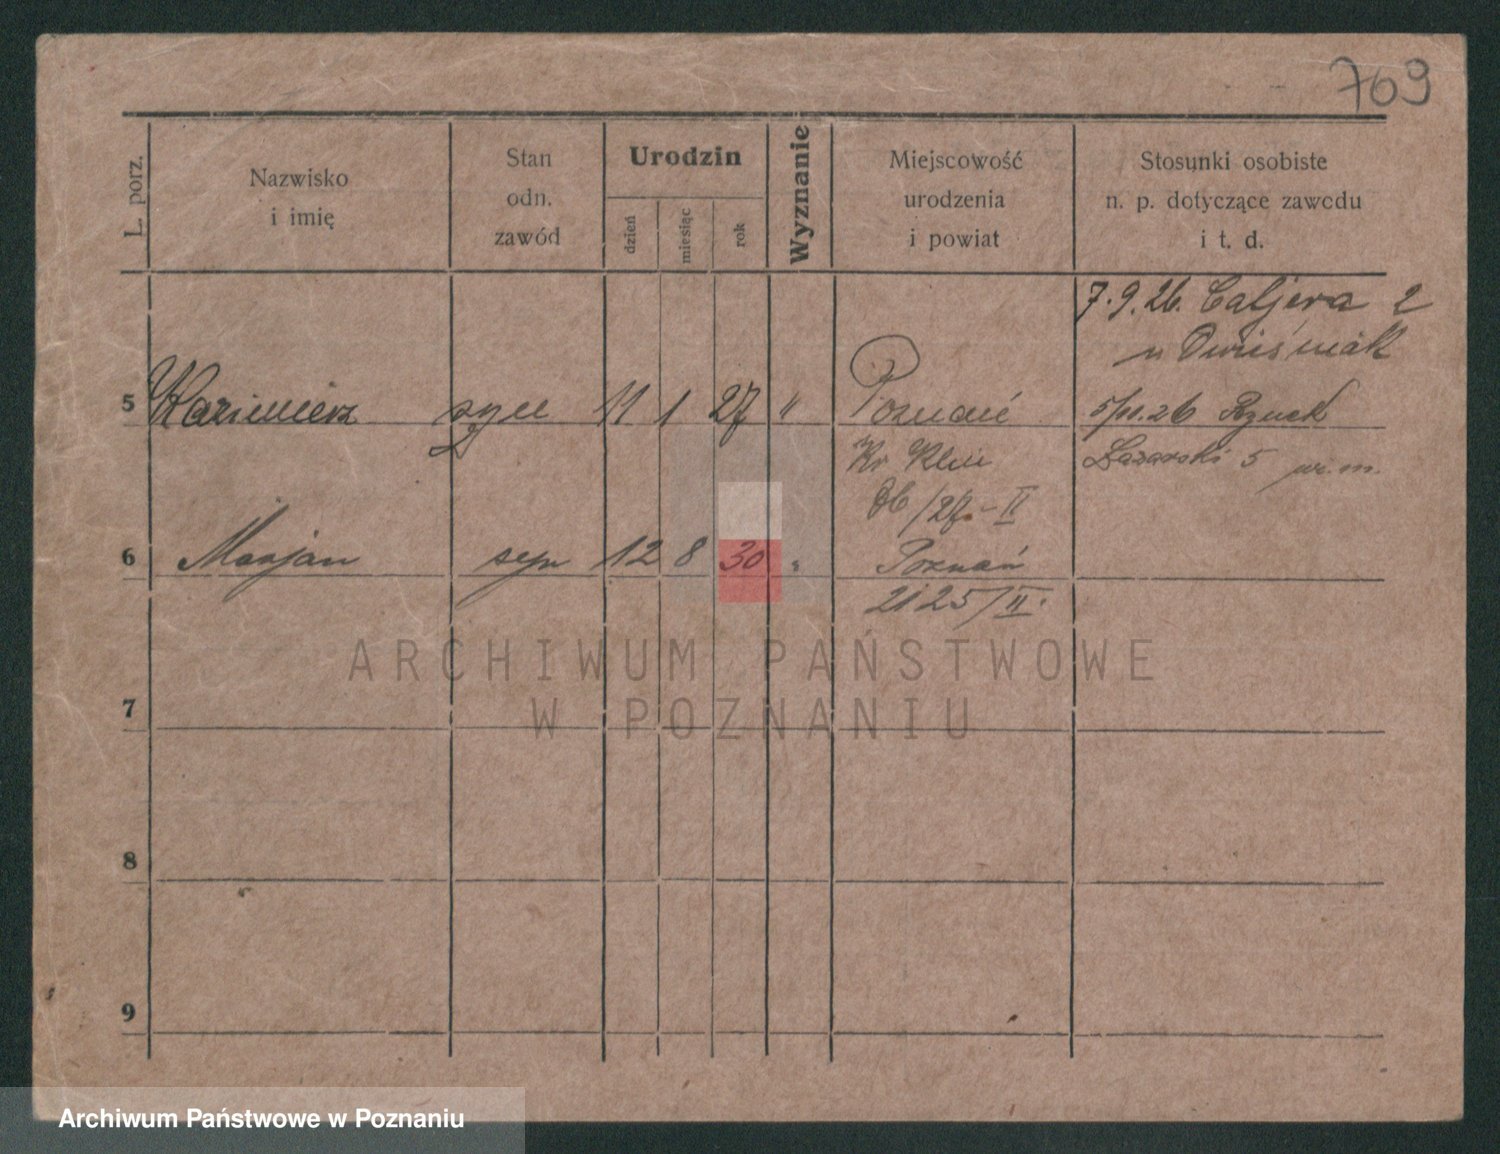 769
L. porz.
Nazwisko
i imię
Stan
odn.
zawód
Urodzin
dzień
miesiąc
rok
Wyznanie
Miejscowość
urodzenia
i powiat
Stosunki osobiste
n. p. dotyczące zawodu
i t. d.
7.9.26. Caljera 2
u
5 Kazimierz syn 11 1 27 " Poznań 5/11.26 Rynek
Kr Klin Łazarski 5
/27 - II
6 Marjan syn 12 8 30 " Poznań
2125/II.
7
8
9
ARCHIWUM PAŃSTWOWE
W POZNANIU
Archiwum Państwowe w Poznaniu